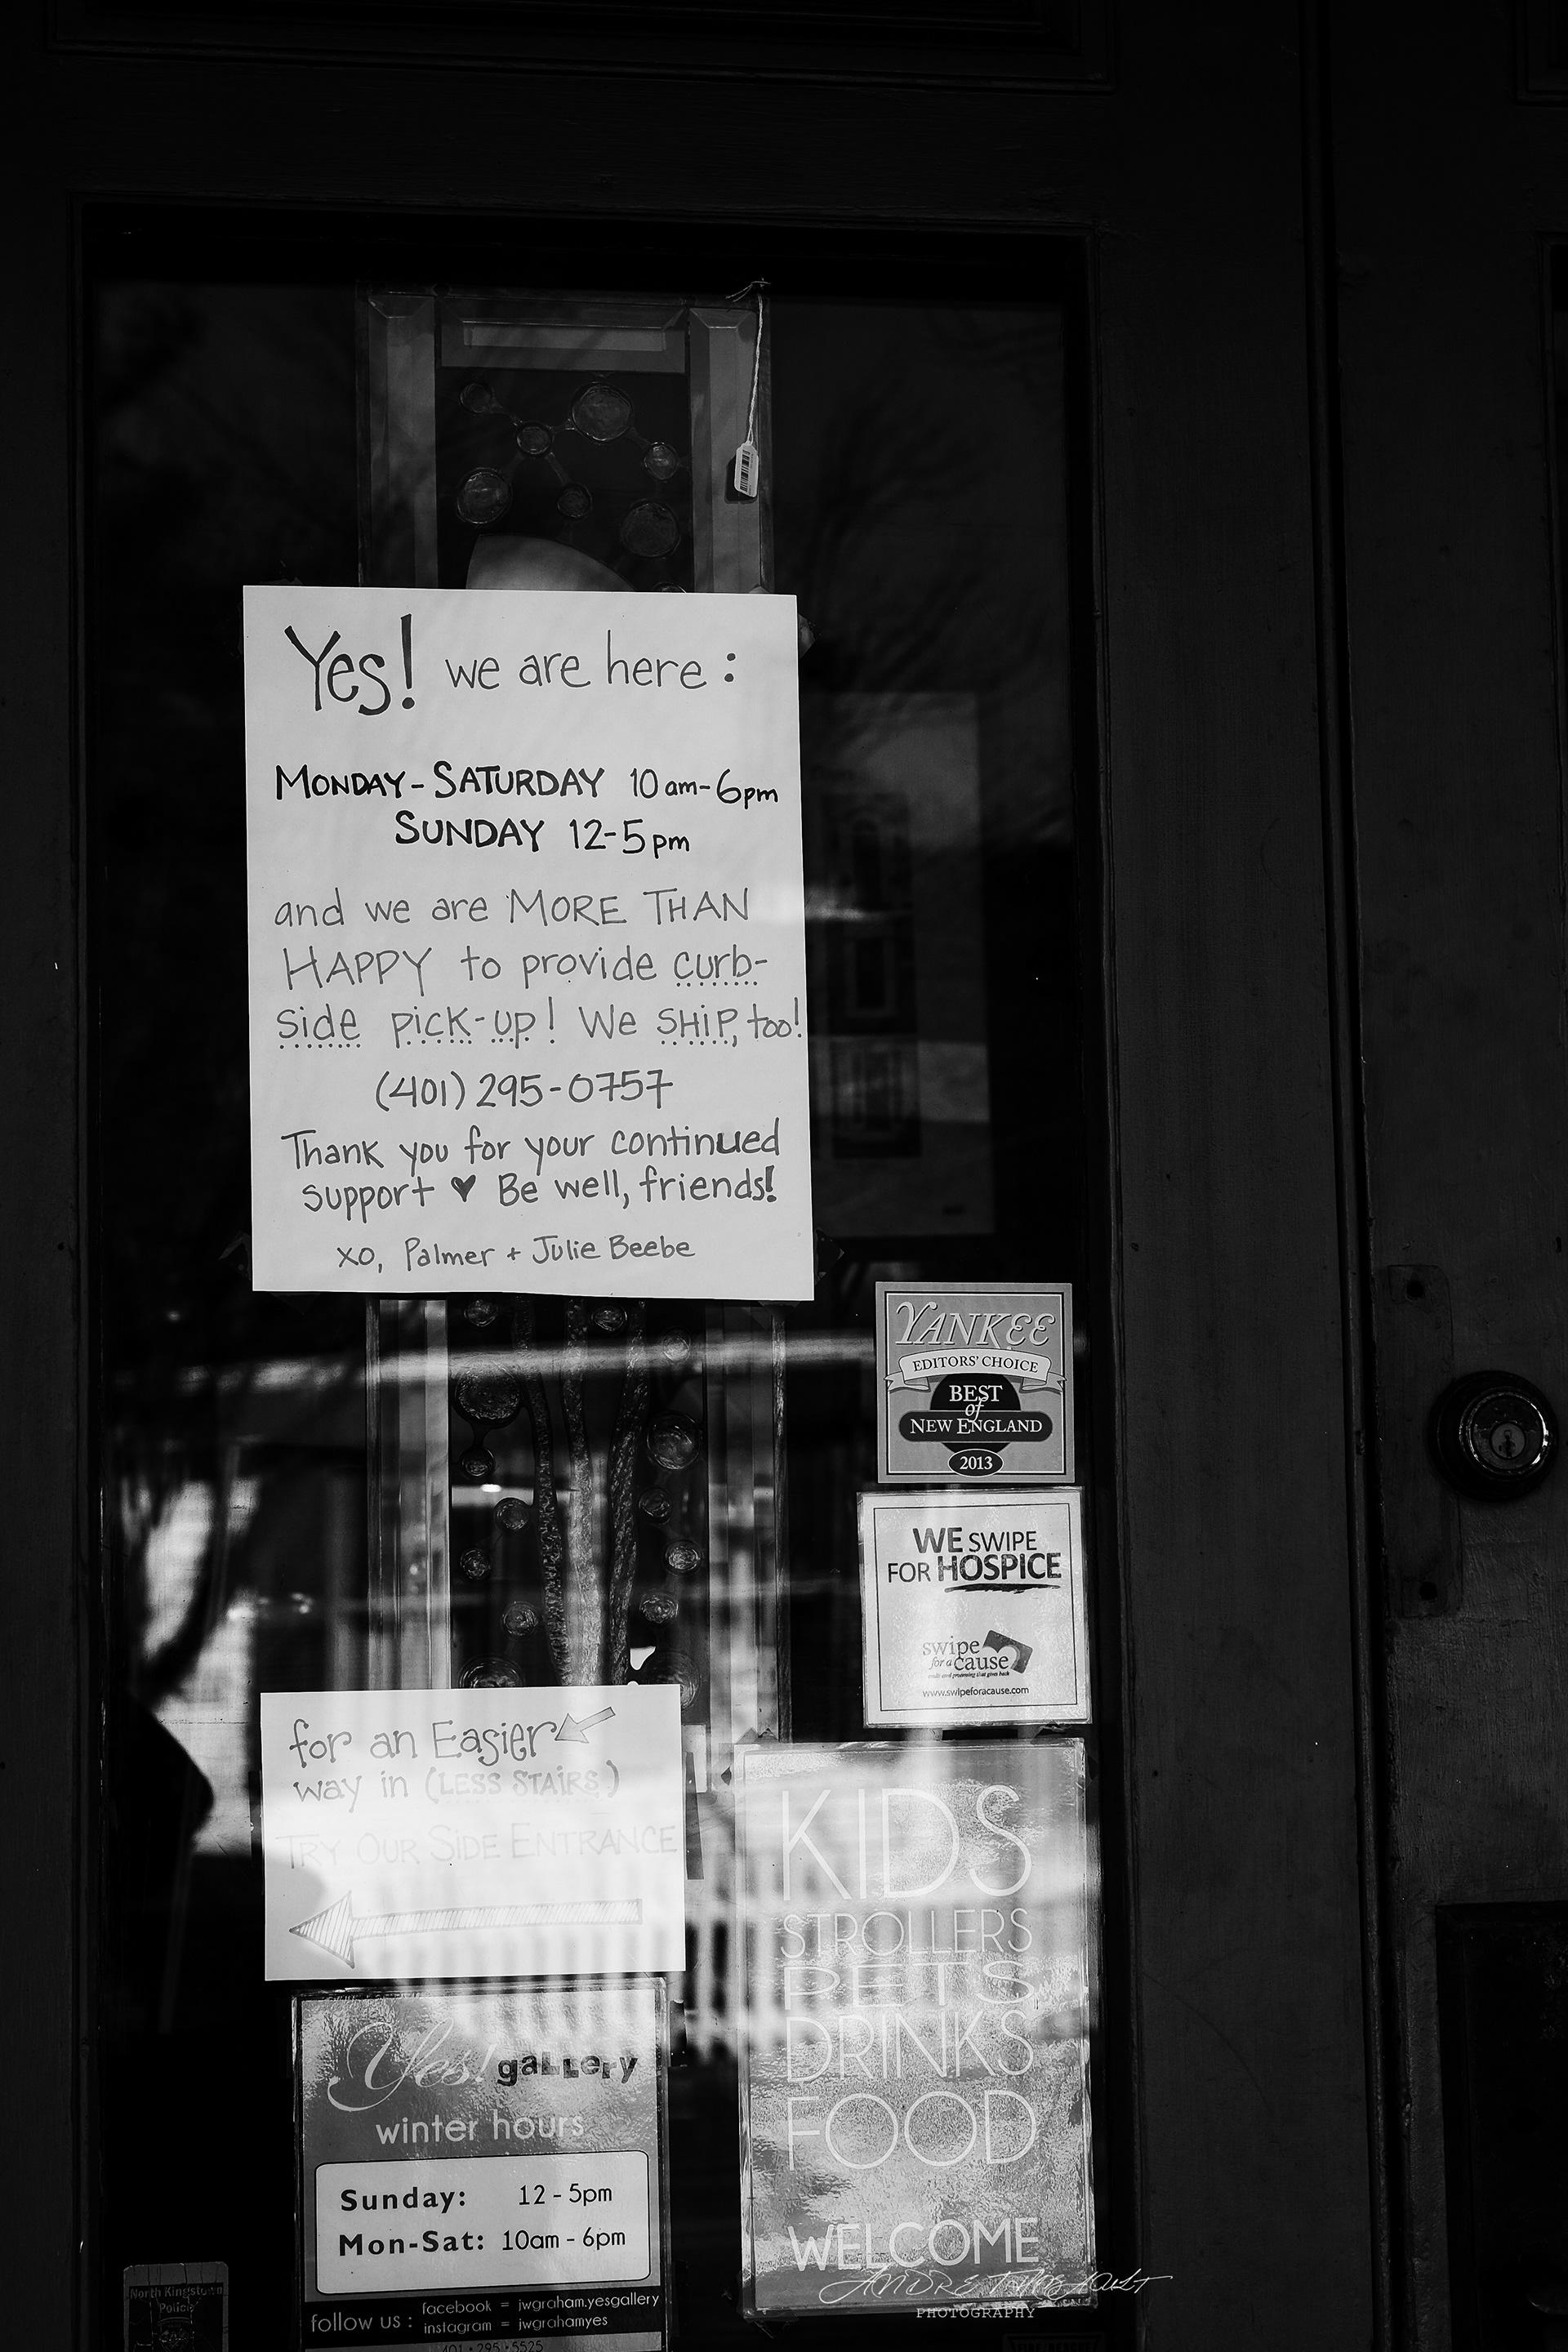 Yes! we are here:
MONDAY-SATURDAY 10am-6pm
SUNDAY 12-5pm
and we are MORE THAN
HAPPY to provide curb-
side pick-up! We SHIP, too!
(401) 295-0757
Thank you for your continued
support ♥ Be well, friends!
xo, Palmer + Julie Beebe
YANKEE
EDITORS' CHOICE
BEST
of
NEW ENGLAND
2013
WE SWIPE
FOR HOSPICE
swipe
for a cause
www.swipeforacause.com
for an Easier
way in (LESS STAIRS)
TRY OUR SIDE ENTRANCE
KIDS
STROLLERS
PETS
DRINKS
FOOD
WELCOME
Yes! gallery
winter hours
Sunday: 12-5pm
Mon-Sat: 10am-6pm
follow us:
facebook = jwgraham.yesgallery
instagram = jwgrahamyes
401·295·5525
North Kingstown
Police
PHOTOGRAPHY